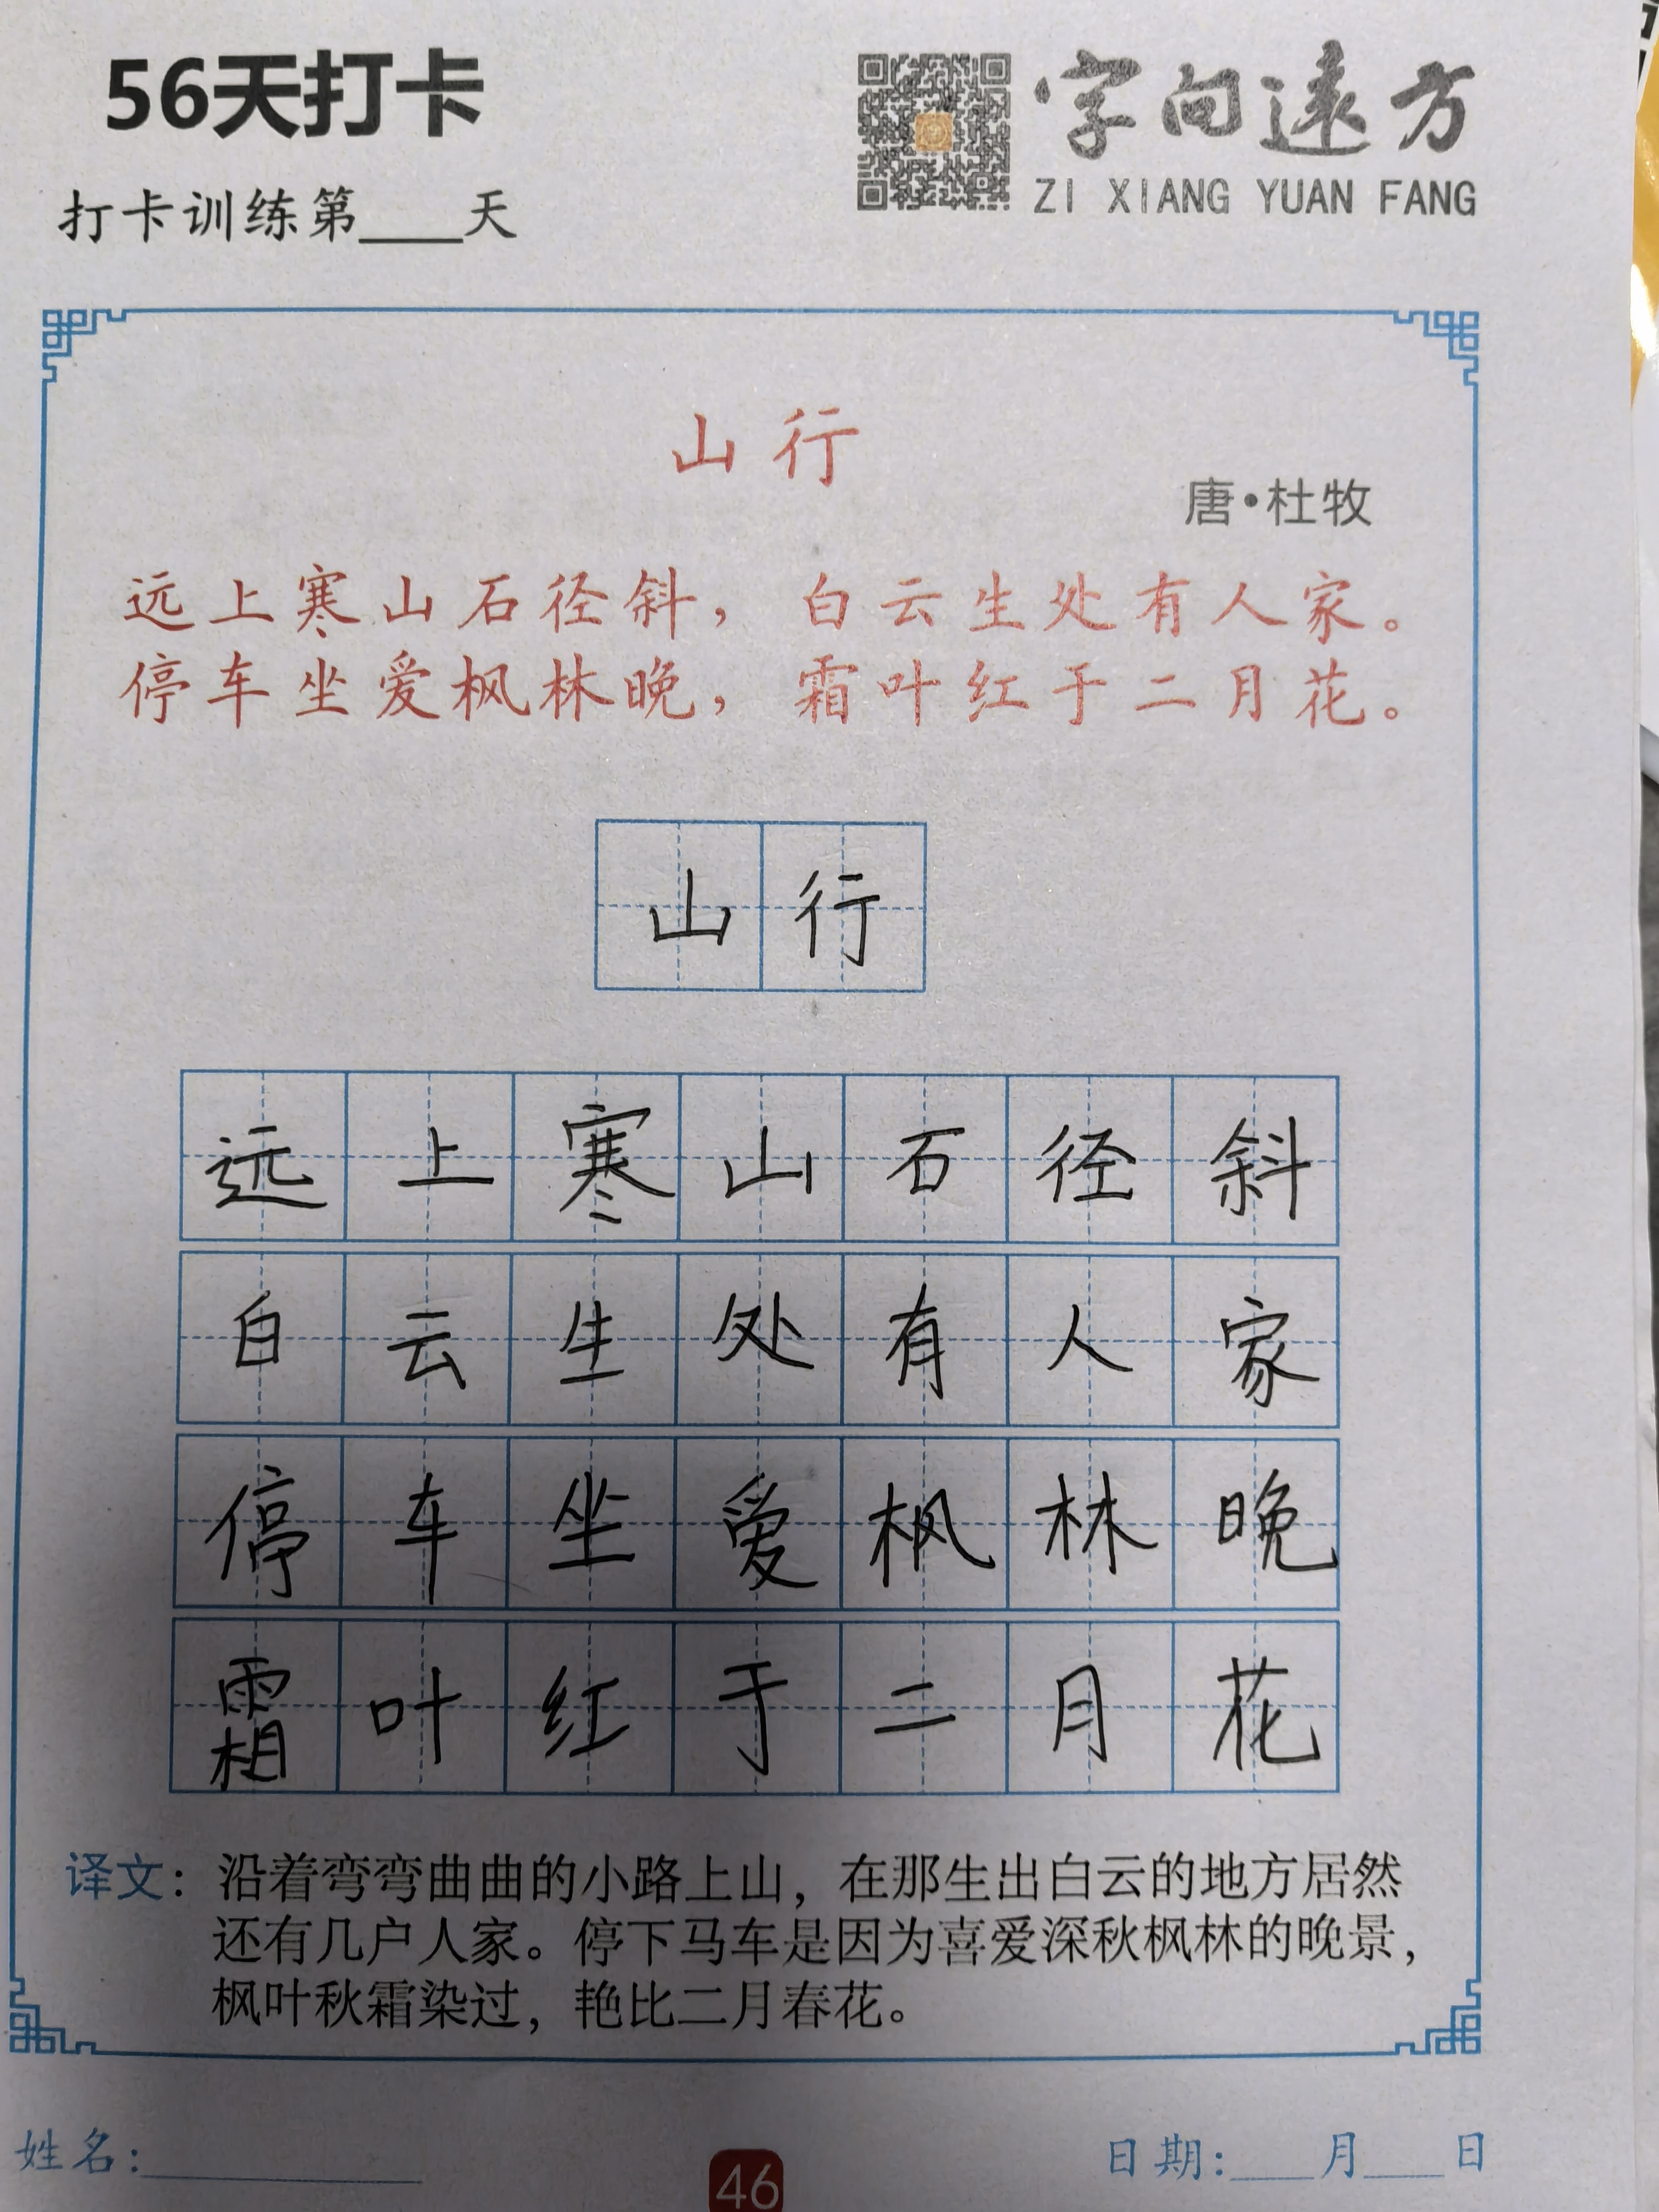 56天打卡
字向遠方
ZI XIANG YUAN FANG
打卡训练第____天
山行
唐·杜牧
远上寒山石径斜，白云生处有人家。
停车坐爱枫林晚，霜叶红于二月花。
山行
远上寒山石径斜
白云生处有人家
停车坐爱枫林晚
霜叶红于二月花
译文：沿着弯弯曲曲的小路上山，在那生出白云的地方居然
还有几户人家。停下马车是因为喜爱深秋枫林的晚景，
枫叶秋霜染过，艳比二月春花。
姓名:__________
46
日期:___月___日